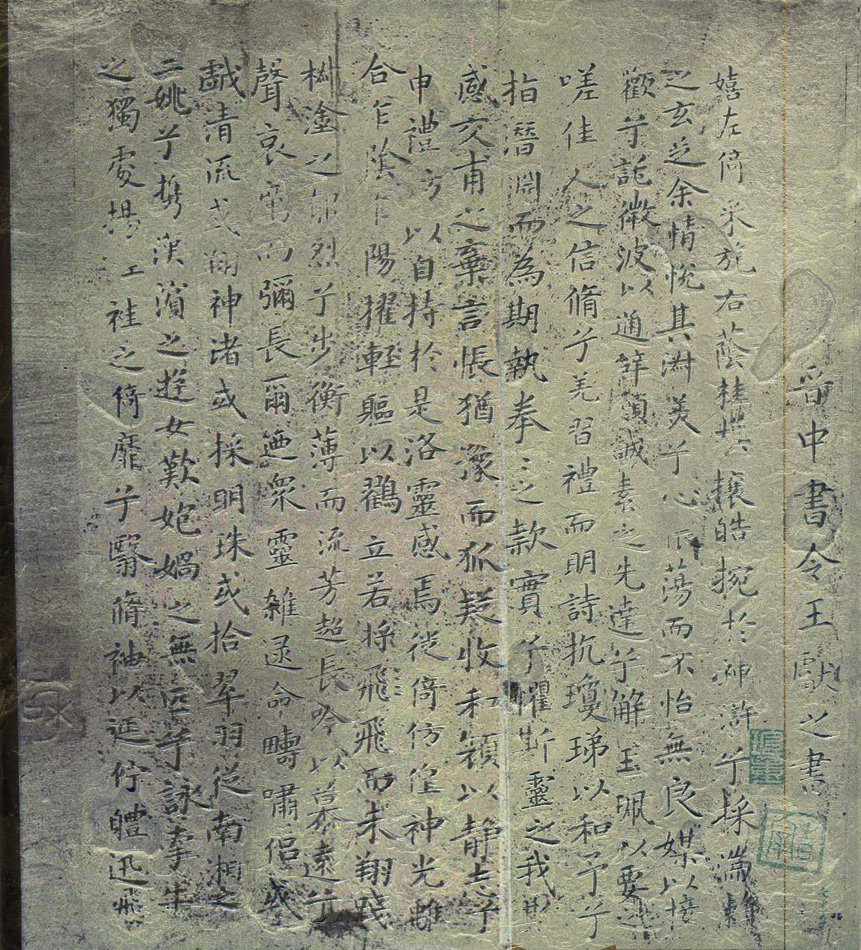 晉中書令王獻之書
嬉左倚采旄右蔭桂旗攘皓捥於神滸兮採湍瀨
之玄芝余情悅其淑美兮心振蕩而不怡無良媒以接
歡兮託微波以通辭願誠素之先達兮解玉珮以要之
嗟佳人之信脩兮羌習禮而明詩抗瓊珶以和予兮
指潛淵而為期執拳〻之款實兮懼斯靈之我欺
感交甫之棄言悵猶豫而狐疑收和顏以靜志兮
申禮防以自持於是洛靈感焉徙倚仿偟神光離
合乍陰乍陽擢輕軀以鶴立若將飛而未翔踐
椒塗之郁烈兮步衡薄而流芳超長吟以慕遠兮
聲哀厲而彌長爾乃眾靈雜遝命疇嘯侶或
戲清流或翔神渚或採明珠或拾翠羽從南湘之
二姚兮攜漢濱之遊女歎媧之無匹兮詠牽牛
之獨處揚袿之倚靡兮翳脩袖以延佇體迅飛